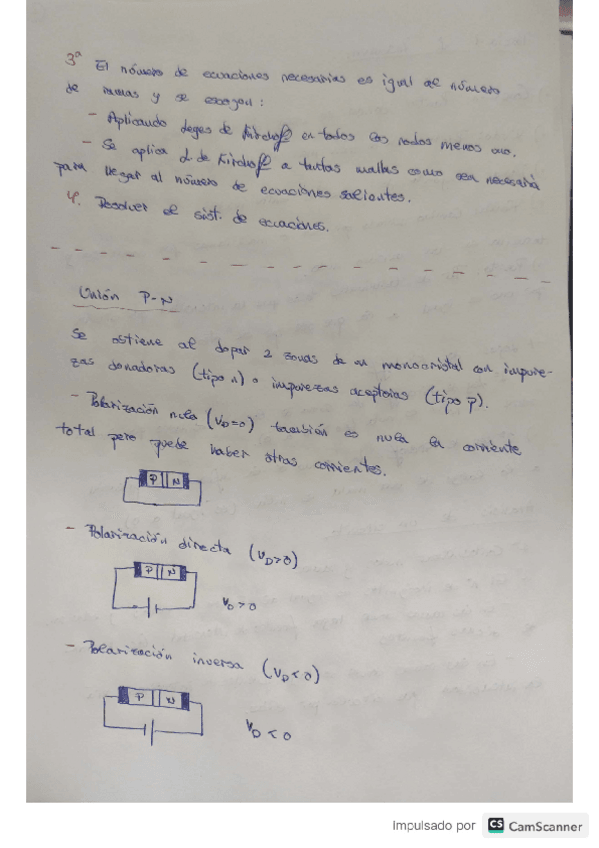 3ª El número de ecuaciones necesarias es igual al número
de ramas y se escogen:
- Aplicando leyes de Kirchoff en todos los nodos menos uno.
- Se aplica L. de Kirchoff a tantas mallas como sea necesaria
para llegar al número de ecuaciones
4. Resolver el sist. de ecuaciones.
Unión P-N
Se obtiene al dopar 2 zonas de un monocristal con impure-
zas donadoras (tipo n) o impurezas aceptoras (tipo p).
- Polarización nula (VD=0) también es nula la corriente
total pero puede haber otras corrientes.
P N
- Polarización directa (VD>0)
P N
VD > 0
- Polarización inversa (VD<0)
P N
VD < 0
Impulsado por CS CamScanner